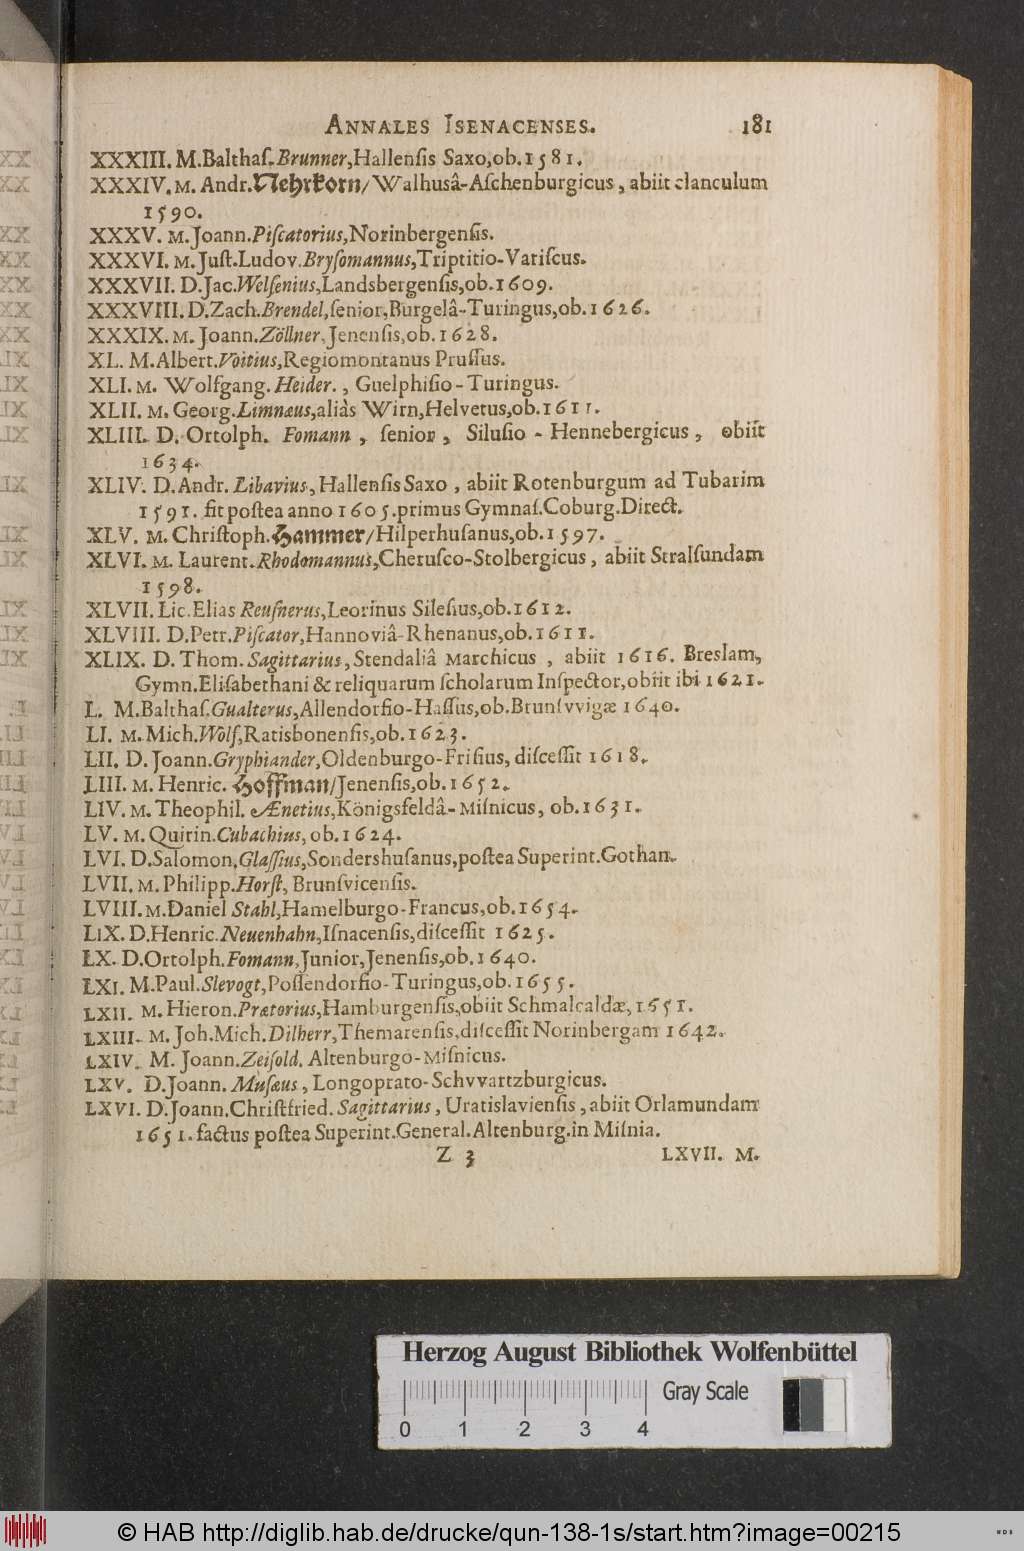 ANNALES ISENACENSES. 181
XXXIII. M.Balthaſ.Brunner,Hallenſis Saxo,ob.1581.
XXXIV. M. Andr.Nehrkorn/Walhusâ-Aſchenburgicus, abiit clanculum
1590.
XXXV. M.Joann.Piſcatorius,Norinbergenſis.
XXXVI. M.Juſt.Ludov.Bryſomannus,Triptitio-Variſcus.
XXXVII. D.Jac.Welſenius,Landsbergenſis,ob.1609.
XXXVIII. D.Zach.Brendel,ſenior,Burgelâ-Turingus,ob.1626.
XXXIX. M. Joann.Zöllner,Jenenſis,ob.1628.
XL. M.Albert.Voitius,Regiomontanus Pruſſus.
XLI. M. Wolfgang. Heider. , Guelphiſio-Turingus.
XLII. M. Georg.Limnæus,aliàs Wirn,Helvetus,ob.1611.
XLIII. D. Ortolph. Fomann , ſenior , Siluſio - Hennebergicus , obiit
1634.
XLIV. D.Andr. Libavius,Hallenſis Saxo , abiit Rotenburgum ad Tubarim
1591. fit poſtea anno 1605.primus Gymnaſ.Coburg.Direct.
XLV. M.Chriſtoph.Hammer/Hilperhuſanus,ob.1597.
XLVI. M. Laurent.Rhodomannus,Cheruſco-Stolbergicus , abiit Stralſundam
1598.
XLVII. Lic.Elias Reuſnerus,Leorinus Sileſius,ob.1612.
XLVIII. D.Petr.Piſcator,Hannoviâ-Rhenanus,ob.1611.
XLIX. D. Thom. Sagittarius, Stendaliâ Marchicus , abiit 1616. Breslam,
Gymn.Eliſabethani & reliquarum ſcholarum Inſpector,obiit ibi 1621.
L. M.Balthaſ.Gualterus,Allendorfio-Haſſus,ob.Brunſvvigæ 1640.
LI. M. Mich.Wolf,Ratisbonenſis,ob.1623.
LII. D. Joann.Gryphiander,Oldenburgo-Friſius, diſceſſit 1618.
LIII. M. Henric. Hoffman/Jenenſis,ob.1652.
LIV. M. Theophil. Ænetius,Königsfeldâ-Miſnicus, ob.1631.
LV. M. Quirin.Cubachius, ob.1624.
LVI. D.Salomon.Glaſſius,Sondershuſanus,poſtea Superint.Gothan.
LVII. M. Philipp.Horſt, Brunſvicenſis.
LVIII. M.Daniel Stahl,Hamelburgo-Francus,ob.1654.
LIX. D.Henric.Neuenhahn,Iſnacenſis,diſceſſit 1625.
LX. D.Ortolph.Fomann,Junior,Jenenſis,ob.1640.
LXI. M.Paul.Slevogt,Poſſendorfio-Turingus,ob.1655.
LXII. M. Hieron.Prætorius,Hamburgenſis,obiit Schmalcaldæ,1651.
LXIII. M. Joh.Mich.Dilherr,Themarenſis,diſceſſit Norinbergam 1642.
LXIV. M. Joann.Zeiſold. Altenburgo-Miſnicus.
LXV. D.Joann. Muſæus , Longoprato-Schvvartzburgicus.
LXVI. D.Joann.Chriſtfried. Sagittarius , Uratislavienſis , abiit Orlamundam
1651. factus poſtea Superint.General.Altenburg.in Miſnia.
Z 3 LXVII. M.
Herzog August Bibliothek Wolfenbüttel
Gray Scale
0 1 2 3 4
© HAB http://diglib.hab.de/drucke/qun-138-1s/start.htm?image=00215